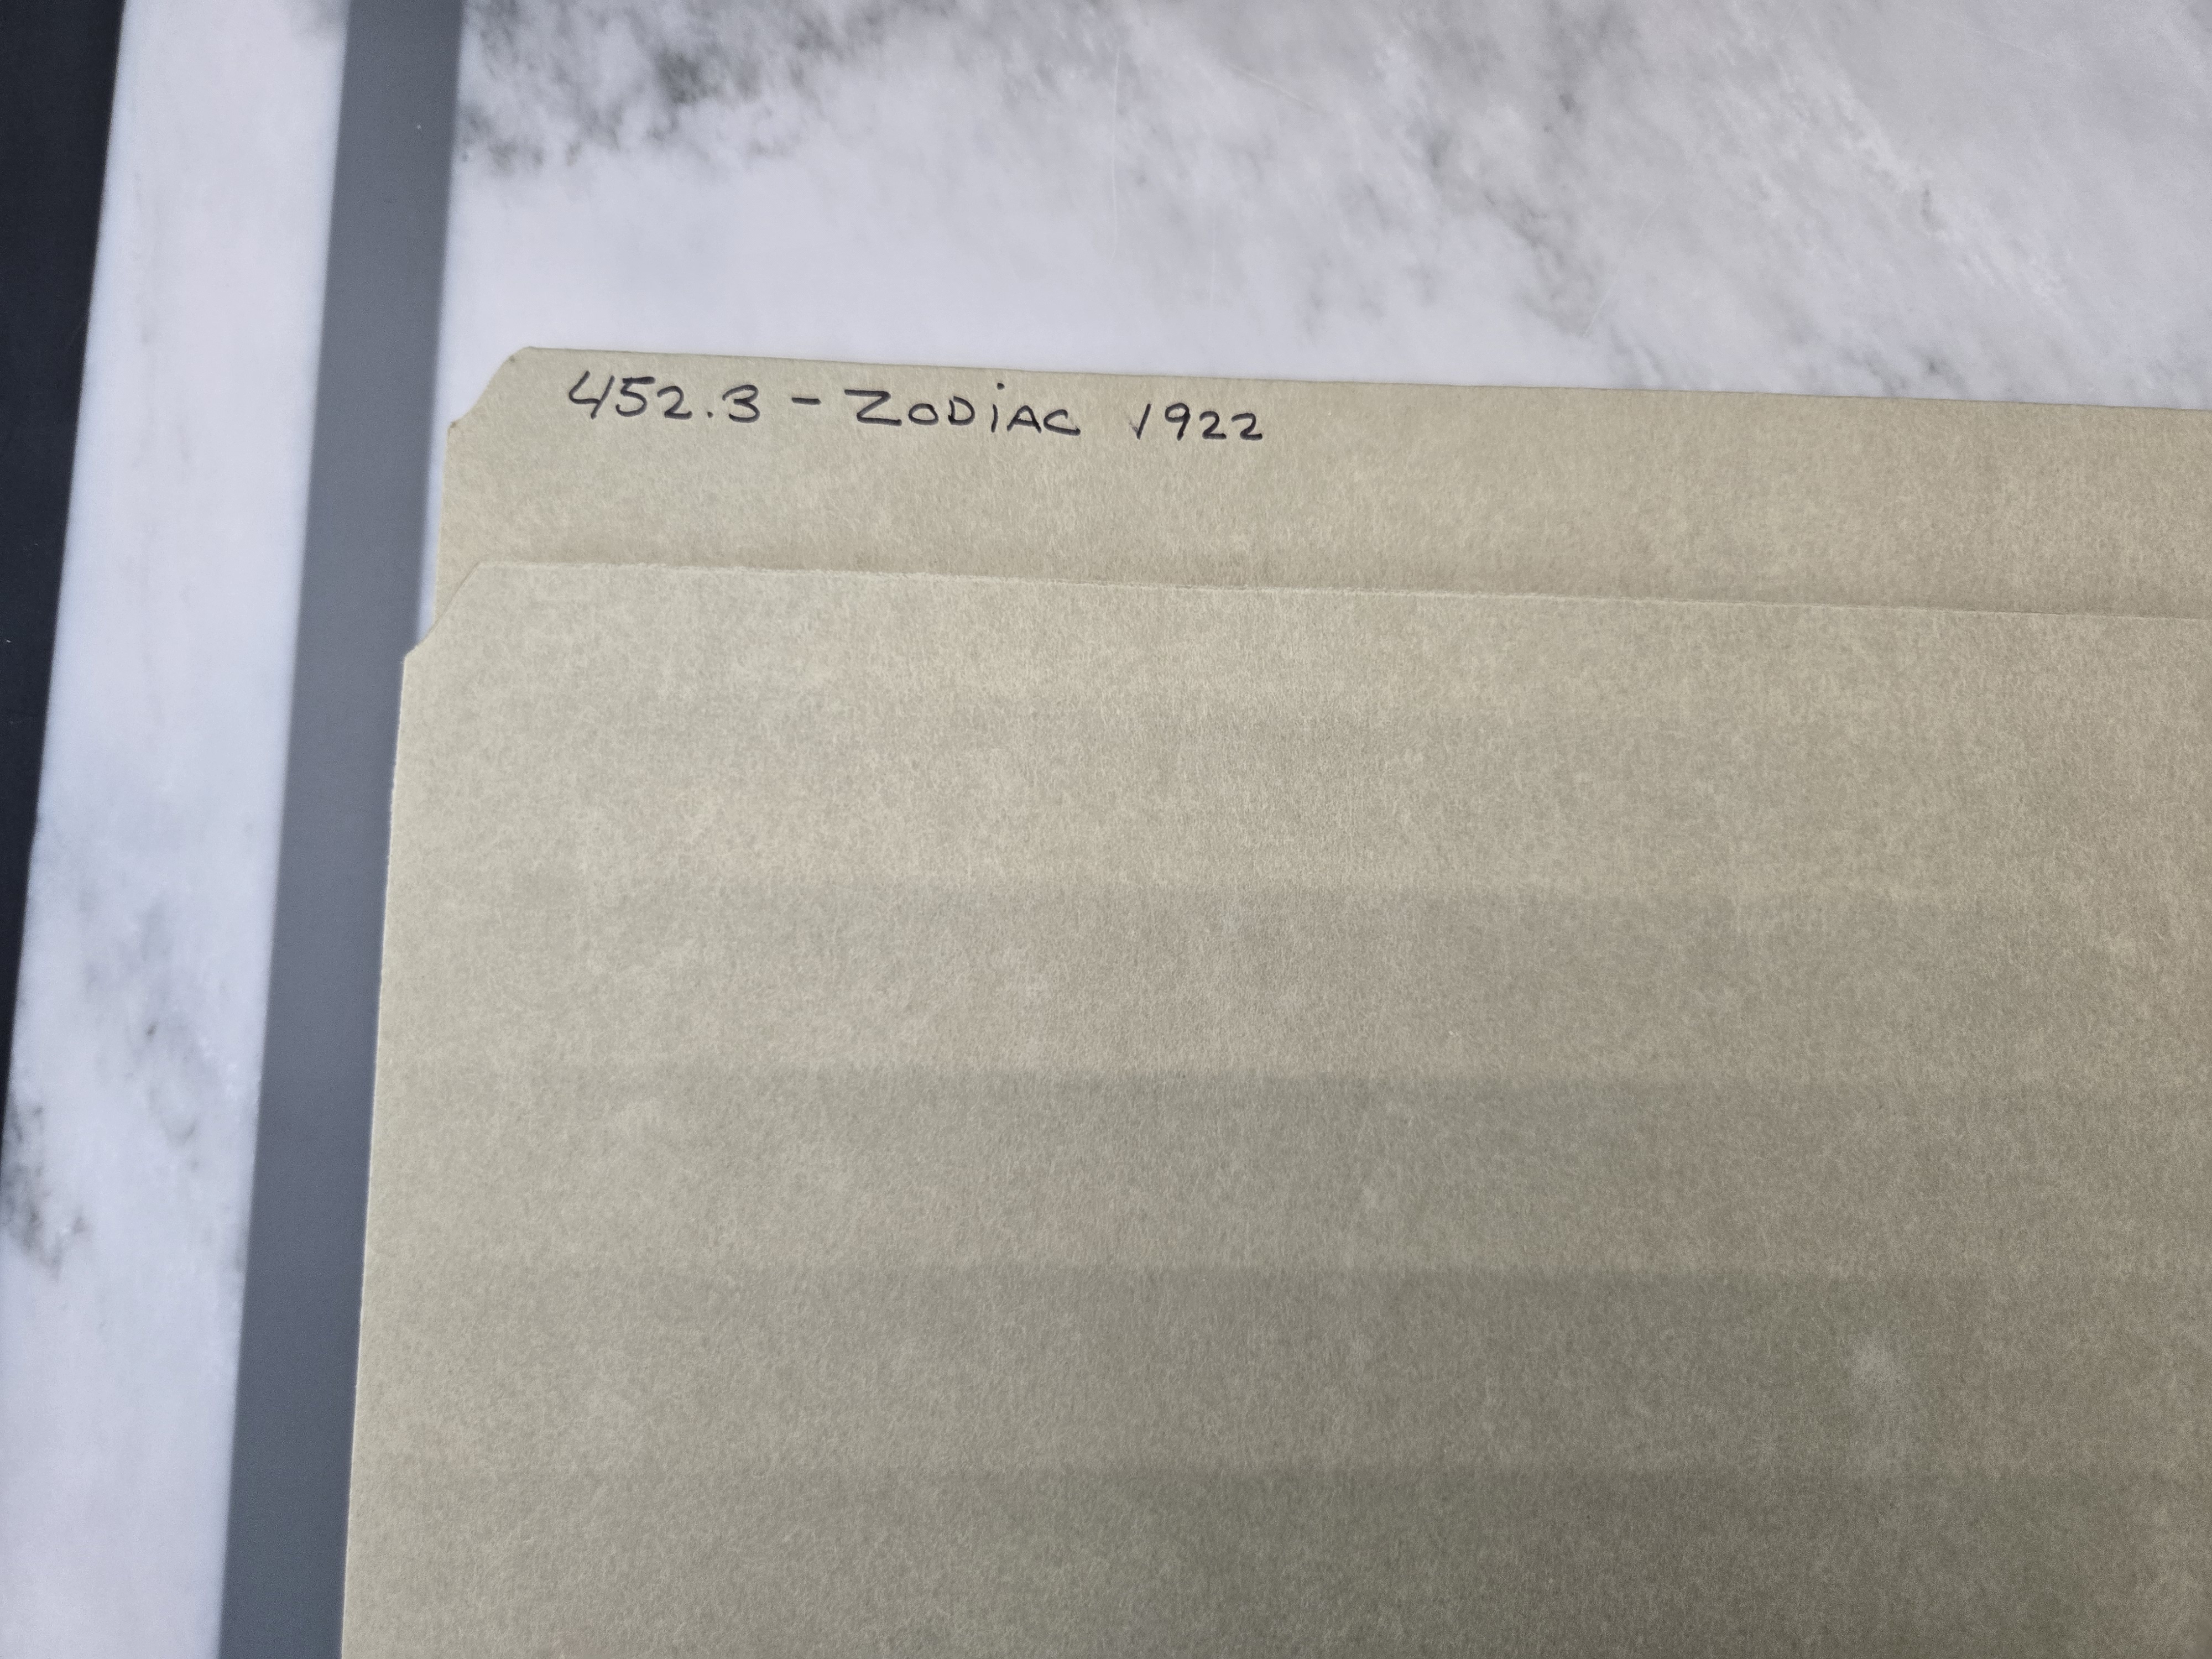 452.3 - ZODiAC 1922